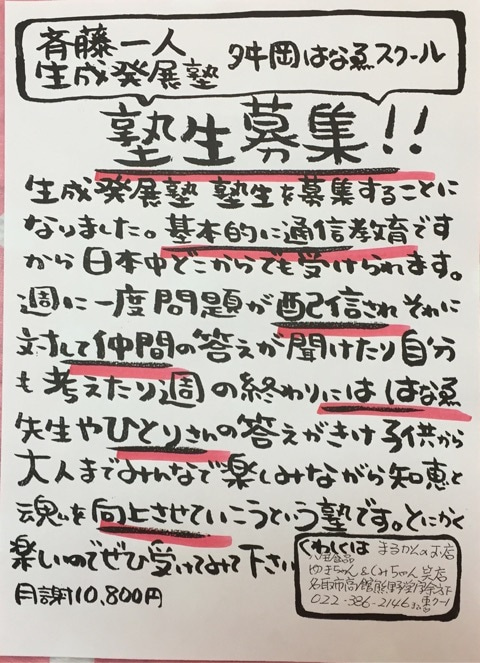 斉藤一人
生成発展塾
舛岡はなゑスクール
塾生募集!!
生成発展塾 塾生を募集することに
なりました。基本的に通信教育です
から日本中どこからでも受けられます。
週に一度問題が配信されそれに
対して仲間の答えが聞けたり自分
も考えたり週の終わりにははなゑ
先生やひとりさんの答えがきけ子供から
大人までみんなで楽しみながら知恵と
魂を向上させていこうという塾です。とにかく
楽しいのでぜひ受けてみて下さい
月謝10,800円
くわしくは まるかんのお店
ゆきちゃん&しみちゃん笑店
名取市高舘熊野堂字
022-386-2146